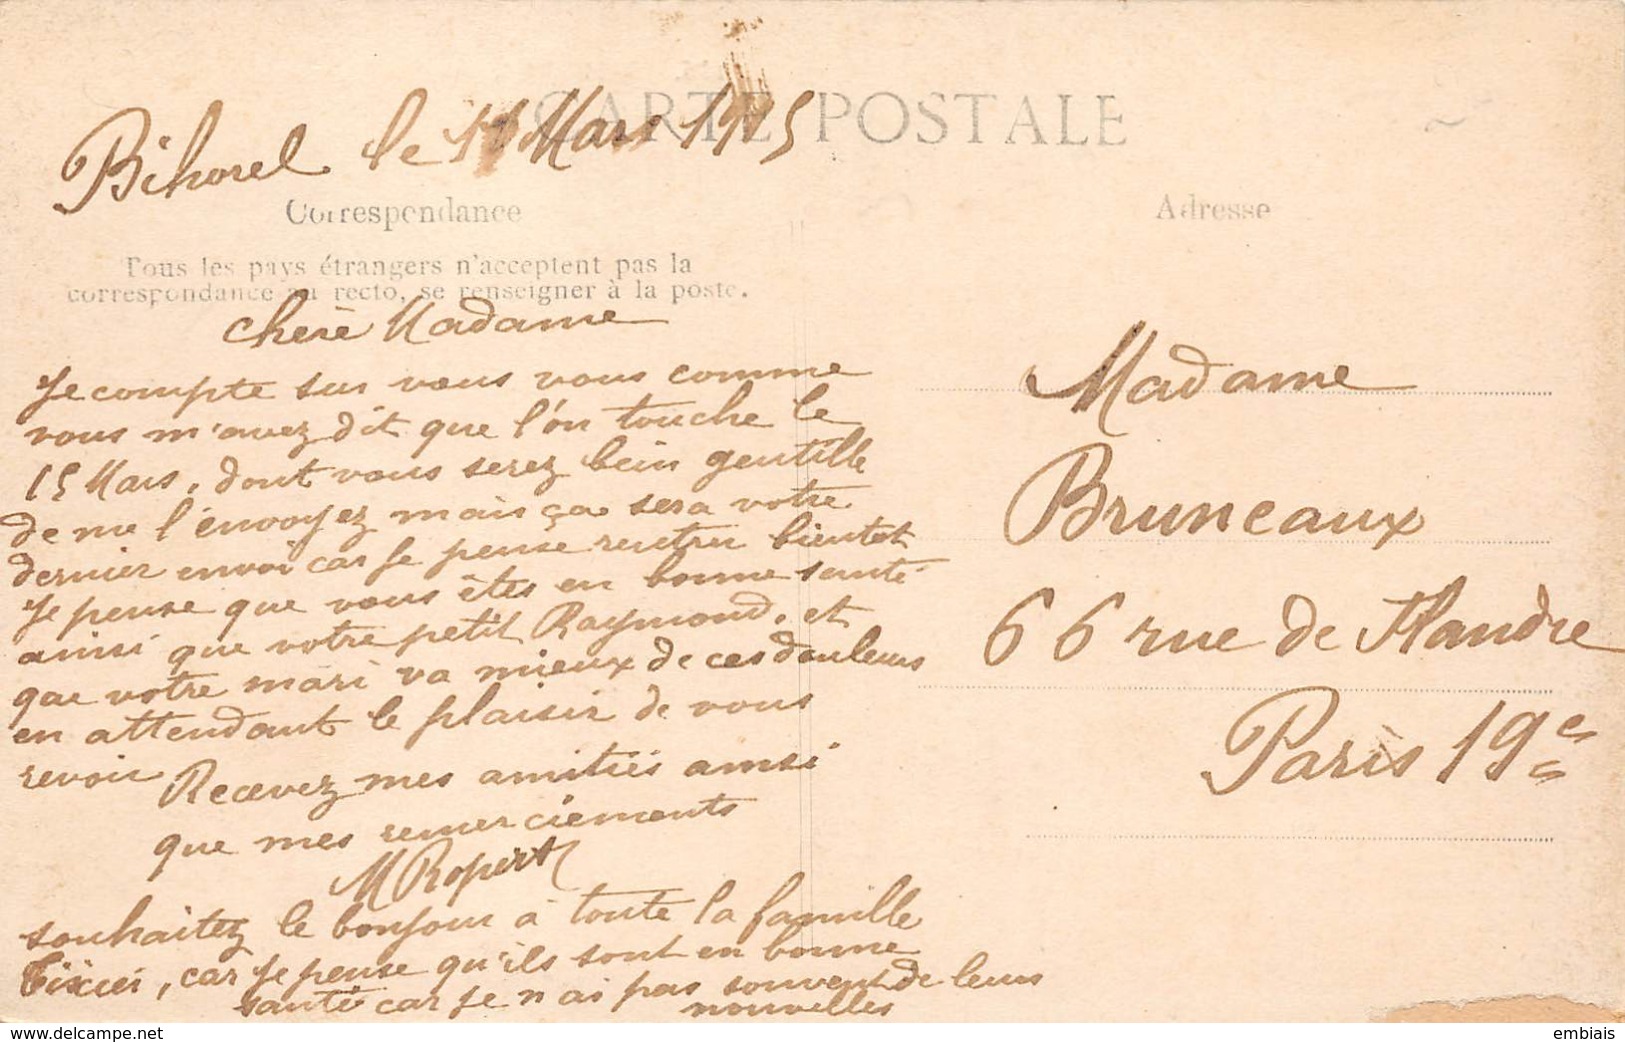 CARTE POSTALE
Bihorel le Mars 1915
Correspondance
Adresse
Tous les pays étrangers n'acceptent pas la
correspondance au recto, se renseigner à la poste.
Chère Madame
Je compte sur vous vous comme
vous m'avez dit que l'on touche le
15 Mars, dont vous serez bein gentille
de me l'envoyez mais ça sera votre
dernier envoi car je pense rentrer bientot
Je pense que vous êtes en bonne santé
ainsi que votre petit Raymond, et
que votre mari va mieux de ces douleurs
en attendant le plaisir de vous
revoir
Recevez mes amitiés ainsi
que mes remerciements
M Ropert
souhaitez le bonjour à toute la famille
car je pense qu'ils sont en bonne
santé car je n'ai pas souvent de leurs
nouvelles
Madame
Bruneaux
66 rue de Flandre
Paris 19e
delcampe.net
embiais